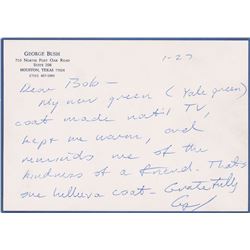 GEORGE BUSH
710 NORTH POST OAK ROAD
SUITE 208
HOUSTON, TEXAS 77024
(713) 467-
1-27
Dear Bob—
My new green (Yale green)
coat made nat'l TV,
kept me warm, and,
reminds me of the
kindness of a friend. Thats
one helluva coat— Gratefully